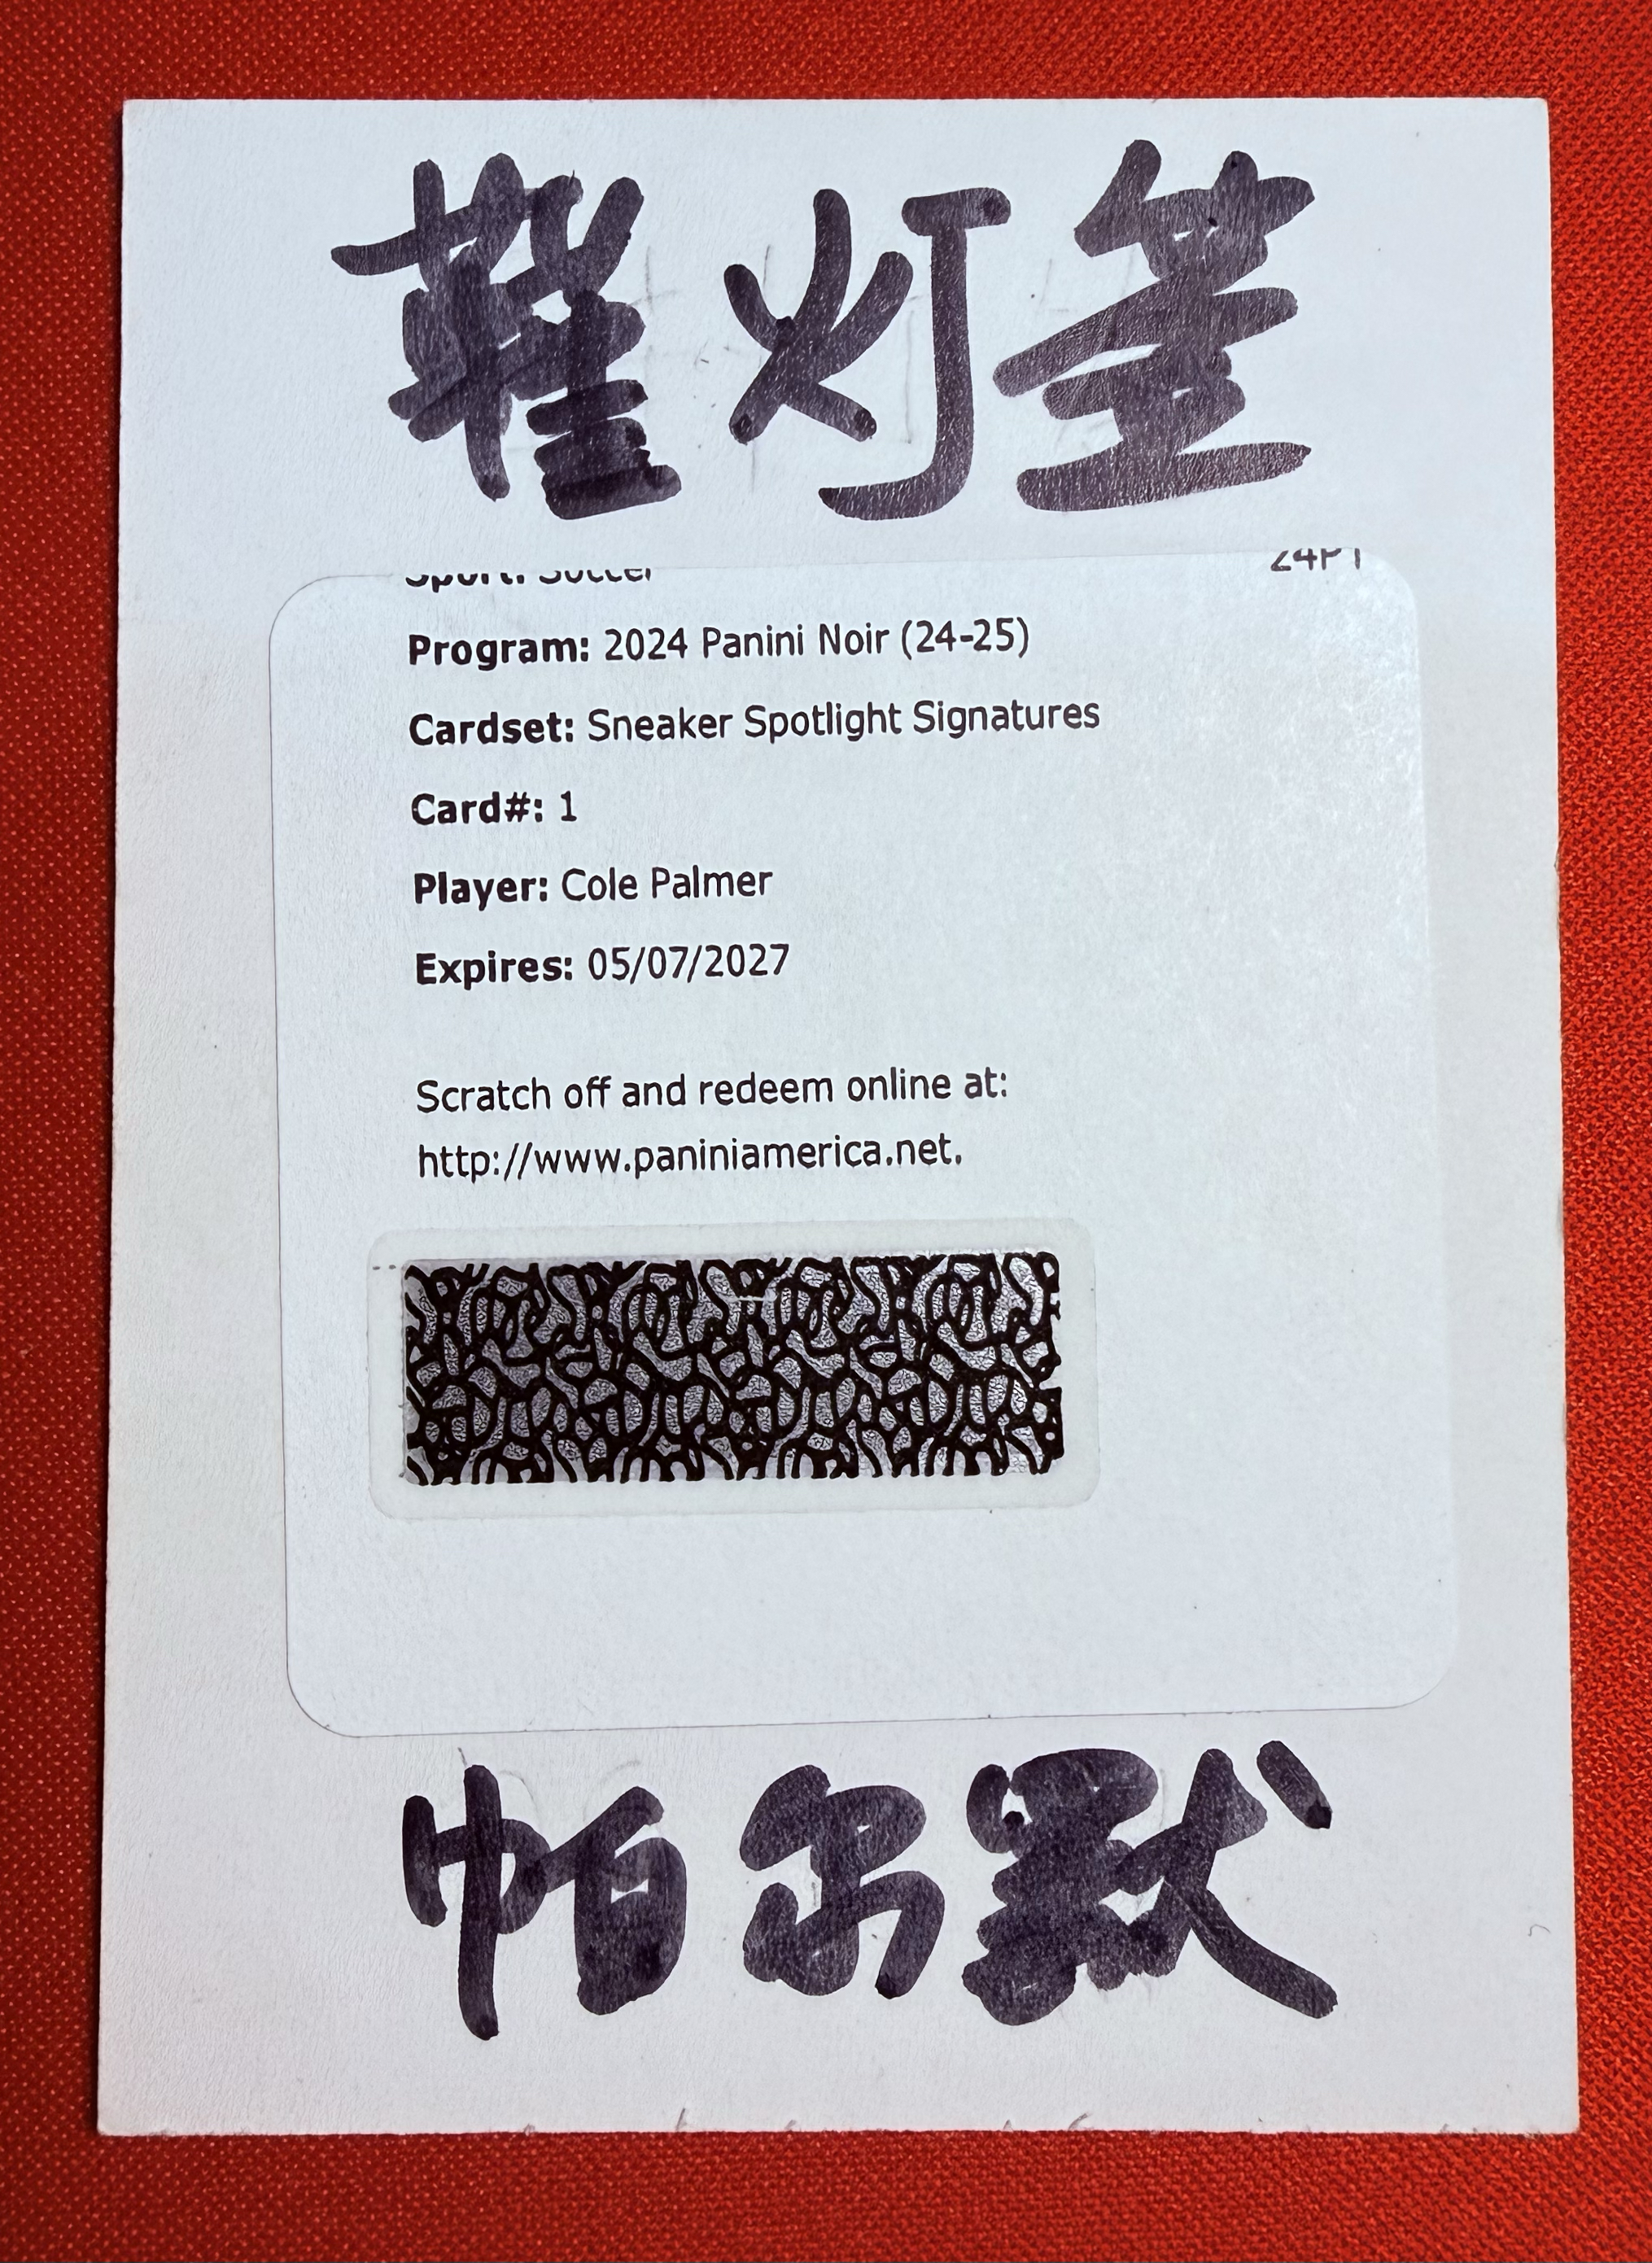 鞋灯签
Sport: Soccer
24PT
Program: 2024 Panini Noir (24-25)
Cardset: Sneaker Spotlight Signatures
Card#: 1
Player: Cole Palmer
Expires: 05/07/2027
Scratch off and redeem online at:
http://www.paniniamerica.net.
帕尔默